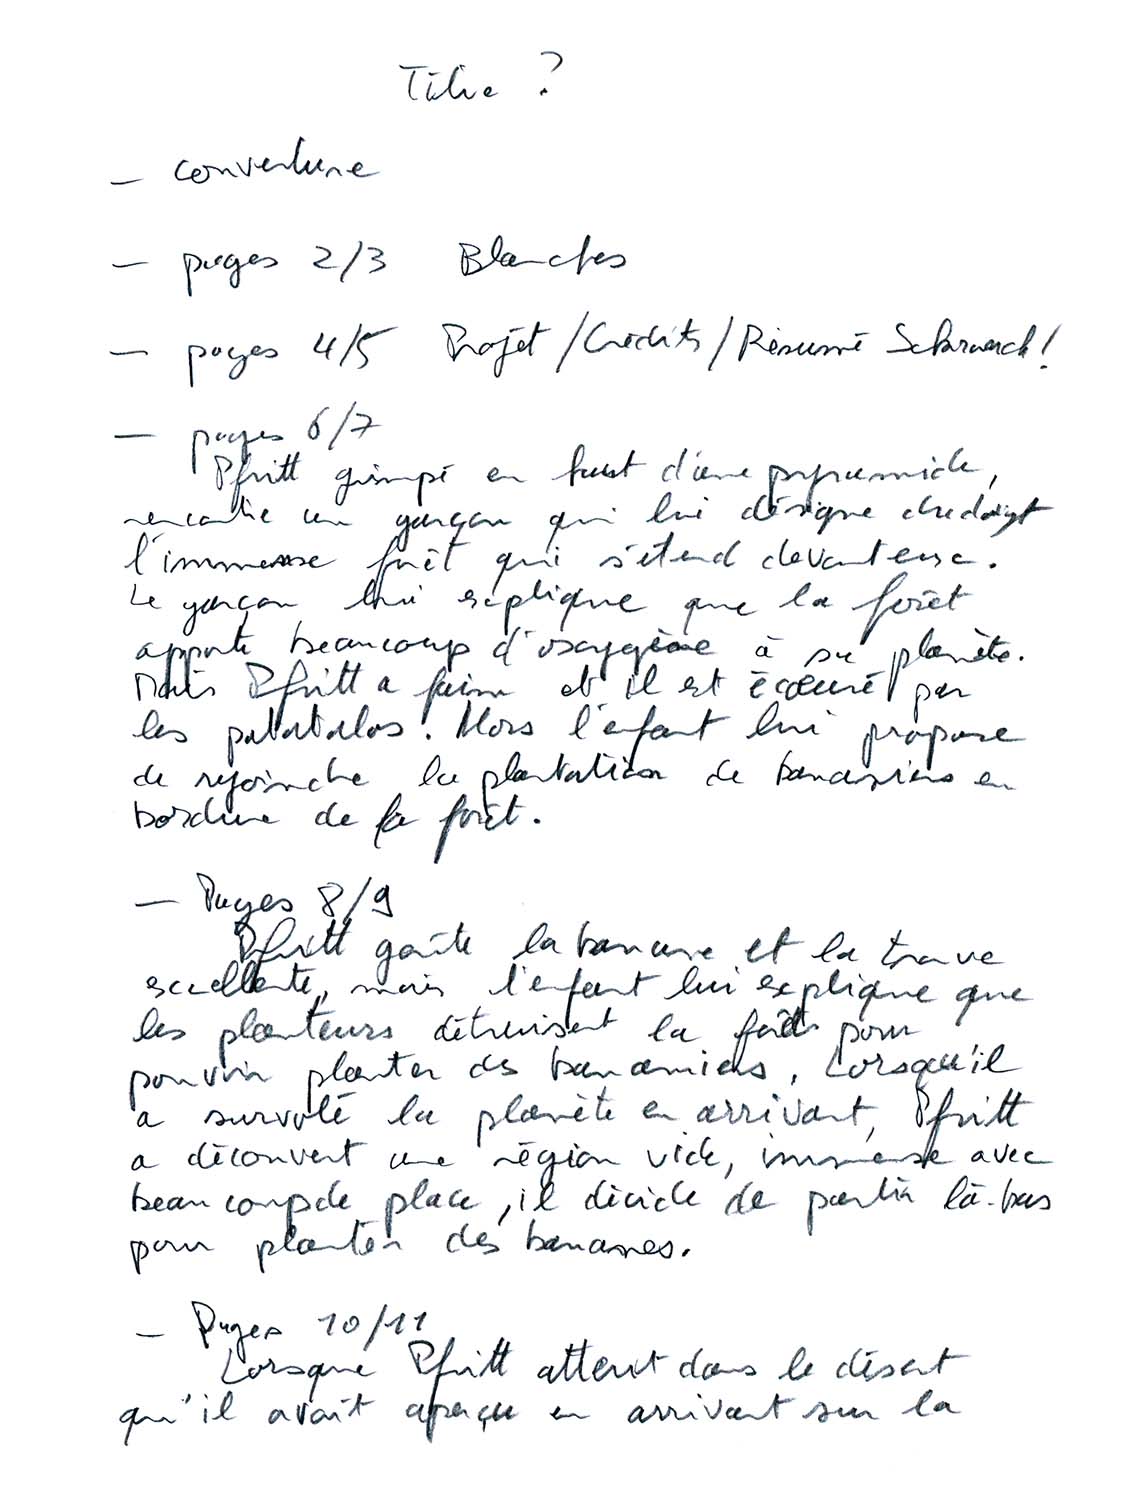 Titre ?
— couverture
— pages 2/3 Blanches
— pages 4/5 Projet / Crédits / Résumé
— pages 6/7
Pfritt grimpé en haut d'une pyramide,
rencontre un garçon qui lui désigne du doigt
l'immense forêt qui s'étend devant eux.
Le garçon lui explique que la forêt
apporte beaucoup d'oxygène à sa planète.
Mais Pfritt a faim et il est écœuré par
les patatalos. Alors l'enfant lui propose
de rejoindre la plantation de bananiers en
bordure de la forêt.
— Pages 8/9
Pfritt goûte la banane et la trouve
excellente, mais l'enfant lui explique que
les planteurs détruisent la forêt pour
pouvoir planter des bananiers. Lorsqu'il
a survolé la planète en arrivant, Pfritt
a découvert une région vide, immense avec
beaucoup de place, il décide de partir là-bas
pour planter des bananes.
— Pages 10/11
Lorsque Pfritt atterit dans le désert
qu'il avait aperçu en arrivant sur la